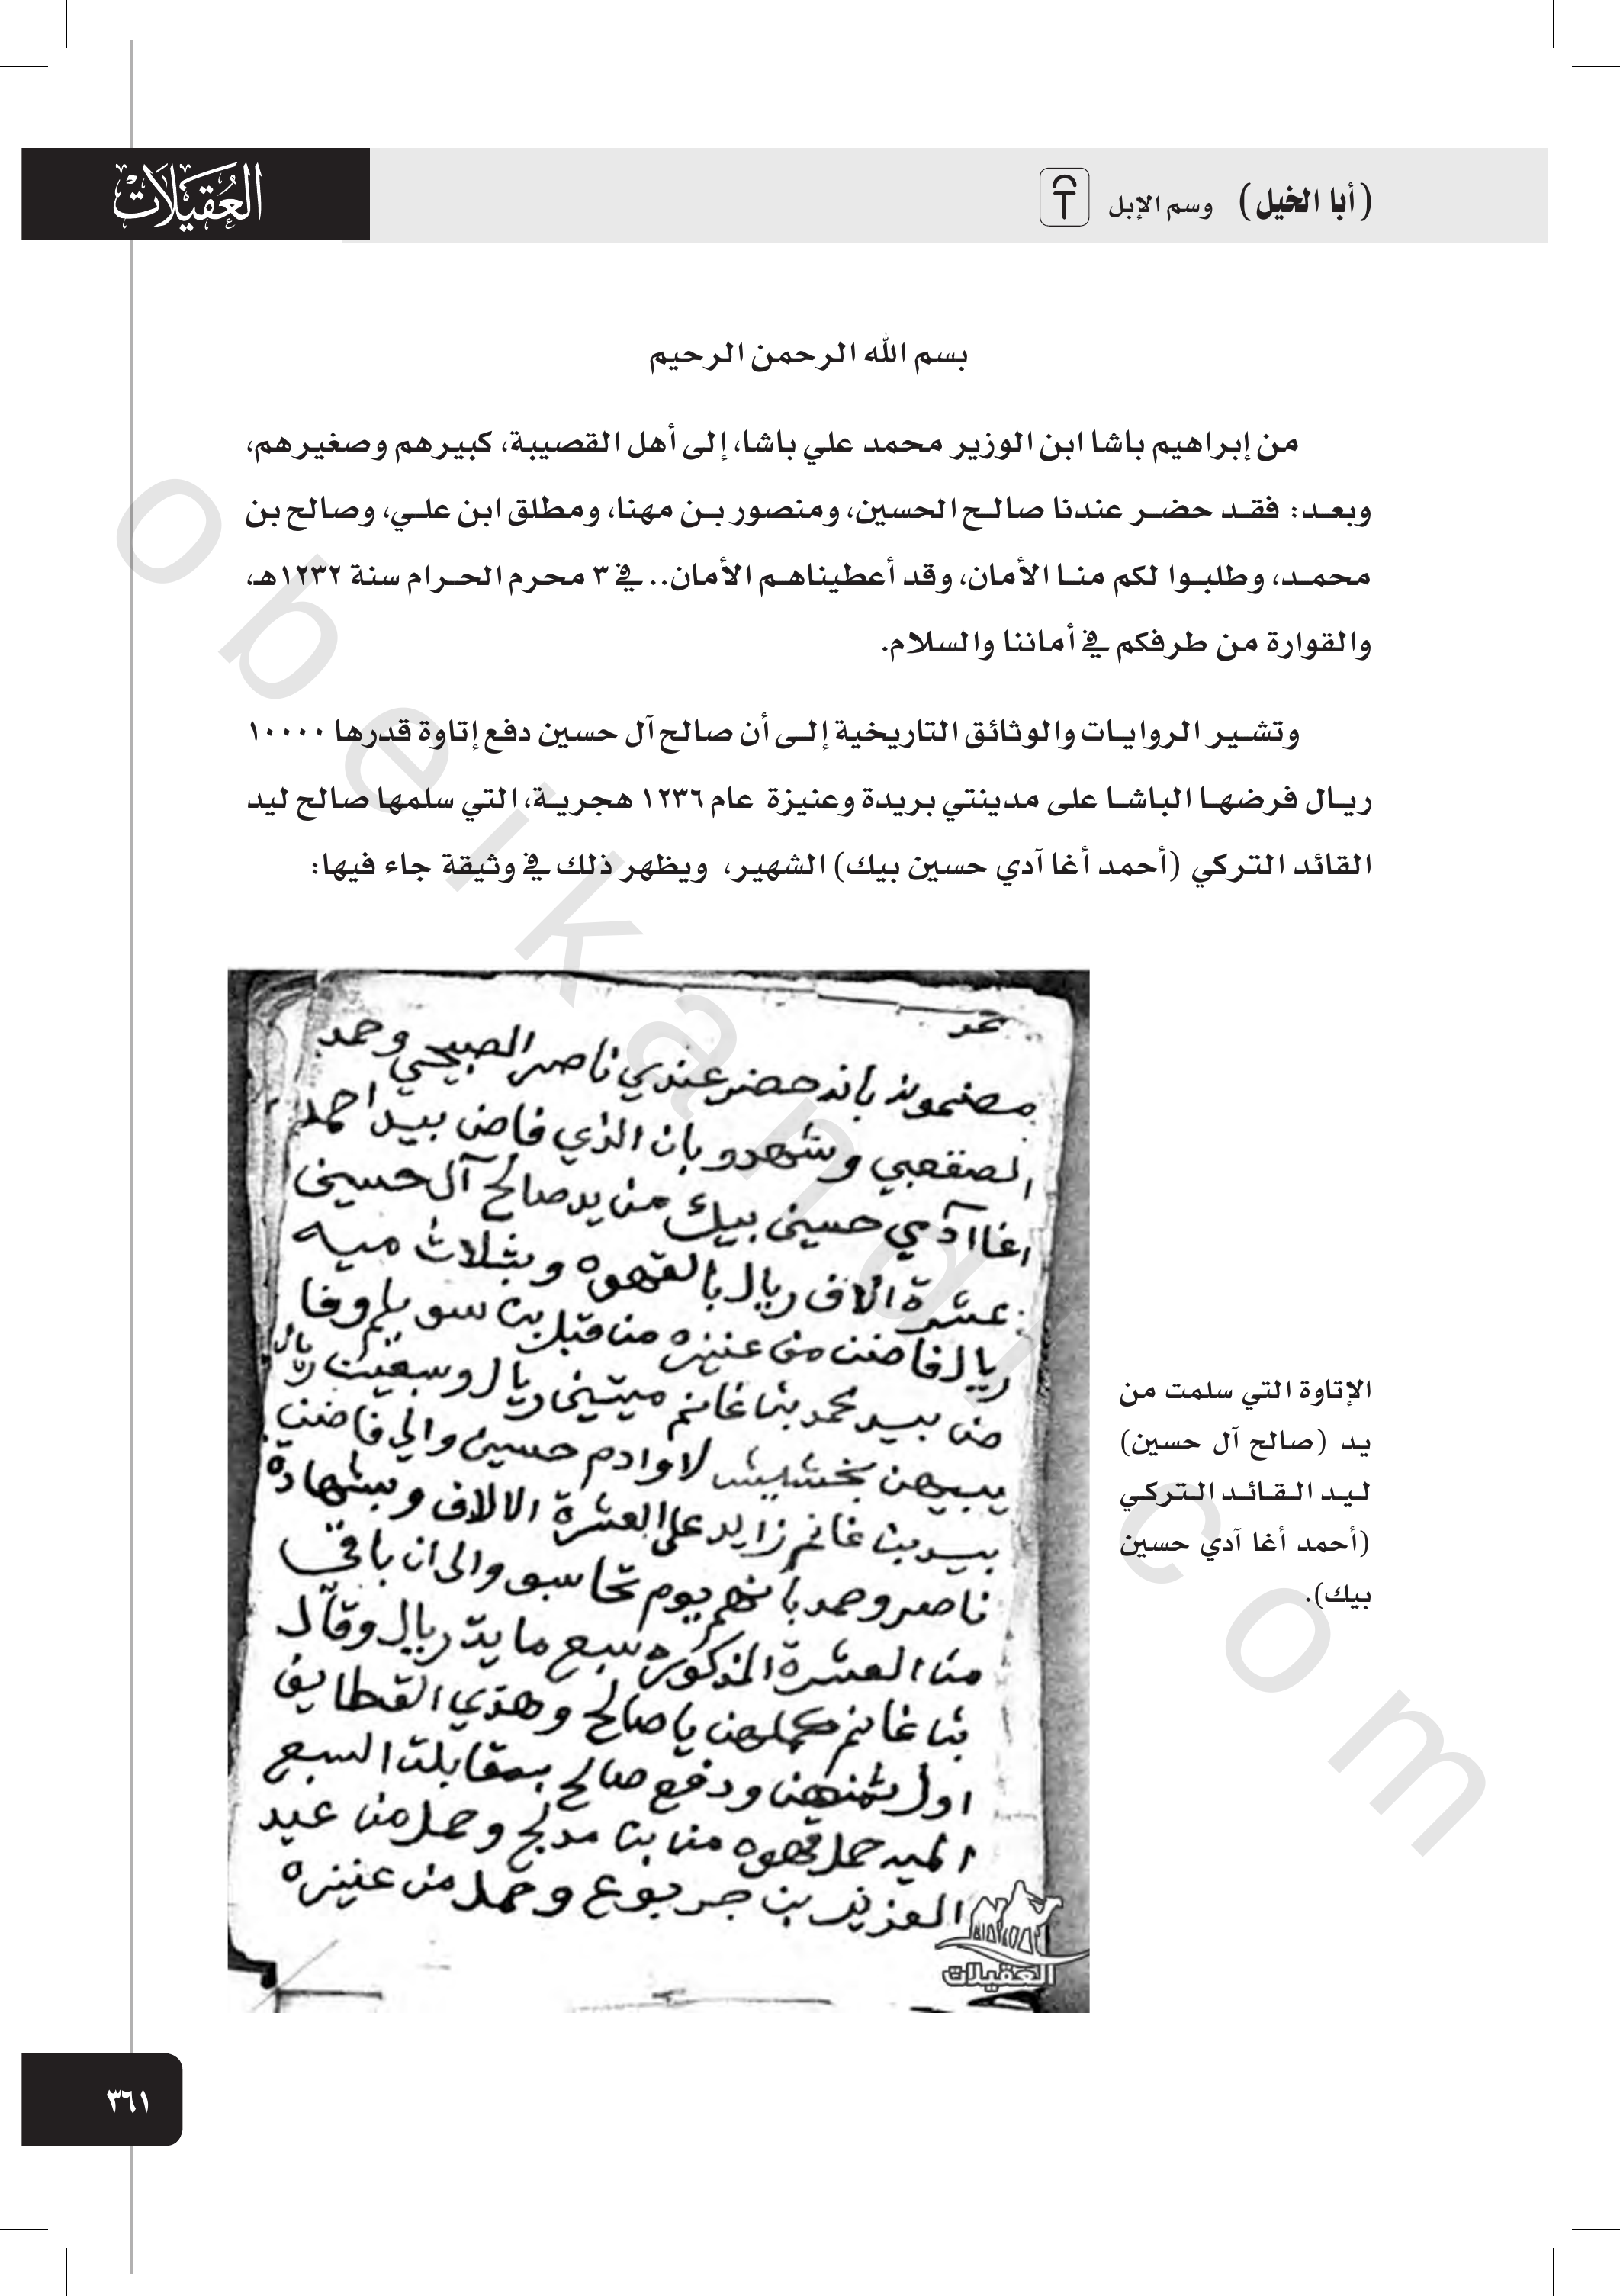 العقيلات
(أبا الخيل) وسم الإبل
بسم الله الرحمن الرحيم
من إبراهيم باشا ابن الوزير محمد علي باشا، إلى أهل القصيبة، كبيرهم وصغيرهم،
وبعد: فقد حضر عندنا صالح الحسين، ومنصور بن مهنا، ومطلق ابن علي، وصالح بن
محمد، وطلبوا لكم منا الأمان، وقد أعطيناهم الأمان.. في ٣ محرم الحرام سنة ١٢٣٢هـ،
والقوارة من طرفكم في أماننا والسلام.
وتشير الروايات والوثائق التاريخية إلى أن صالح آل حسين دفع إتاوة قدرها ١٠٠٠٠
ريال فرضها الباشا على مدينتي بريدة وعنيزة عام ١٢٣٦ هجرية، التي سلمها صالح ليد
القائد التركي (أحمد أغا آدي حسين بيك) الشهير، ويظهر ذلك في وثيقة جاء فيها:
مضمونه بانه حضر عندي ناصر الصبيحي وحمد
الصقعبي وشهدو بان الذي فاض بيد احمد
اغا آدي حسين بيك من يد صالح آل حسين
عشرة الاف ريال بالقهوه وبثلاث ميه
ريال فاضت من عنيزه من قبل بن سويلم وفا
ض بيد محمد بن غانم ميتين ريال وسبعين ريال
يبيهن بخشيش لاوادم حسين والي فاضت
بيد بن غانم زايد على العشرة الالاف وبشهادة
ناصر وحمد بانهم يوم تحاسبو والى ان باقي
من العشرة المذكوره سبع ماية ريال وقال
بن غانم كملهن يا صالح وهذي القطايف
اول ثمنهن ودفع صالح بمقابلة السبع
الميه حمل قهوه من بن مدلج وحمل من عبد
العزيز بن جربوع وحمل من عنيزه
العقيلات
الإتاوة التي سلمت من
يد (صالح آل حسين)
ليد القائد التركي
(أحمد أغا آدي حسين
بيك).
٣٦١
obeikandl.com